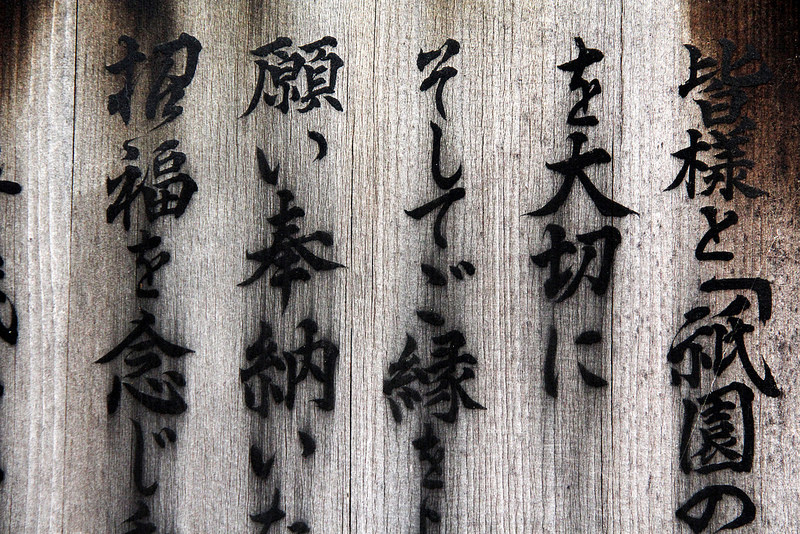 皆様と「祇園の
を大切に
そしてご縁を
願い奉納いた
招福を念じ